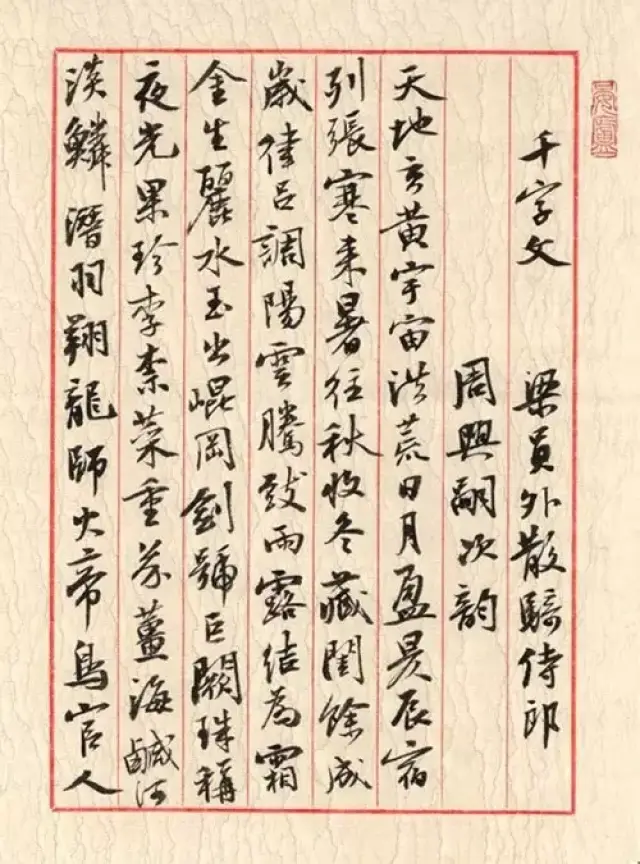 千字文 梁員外散騎侍郎
周興嗣次韵
天地玄黃宇宙洪荒日月盈昃辰宿
列張寒来暑往秋收冬藏閏餘成
歲律呂調陽雲騰致雨露結為霜
金生麗水玉出崐岡劍號巨闕珠稱
夜光果珍李柰菜重芥薑海鹹河
淡鱗潛羽翔龍師火帝鳥官人